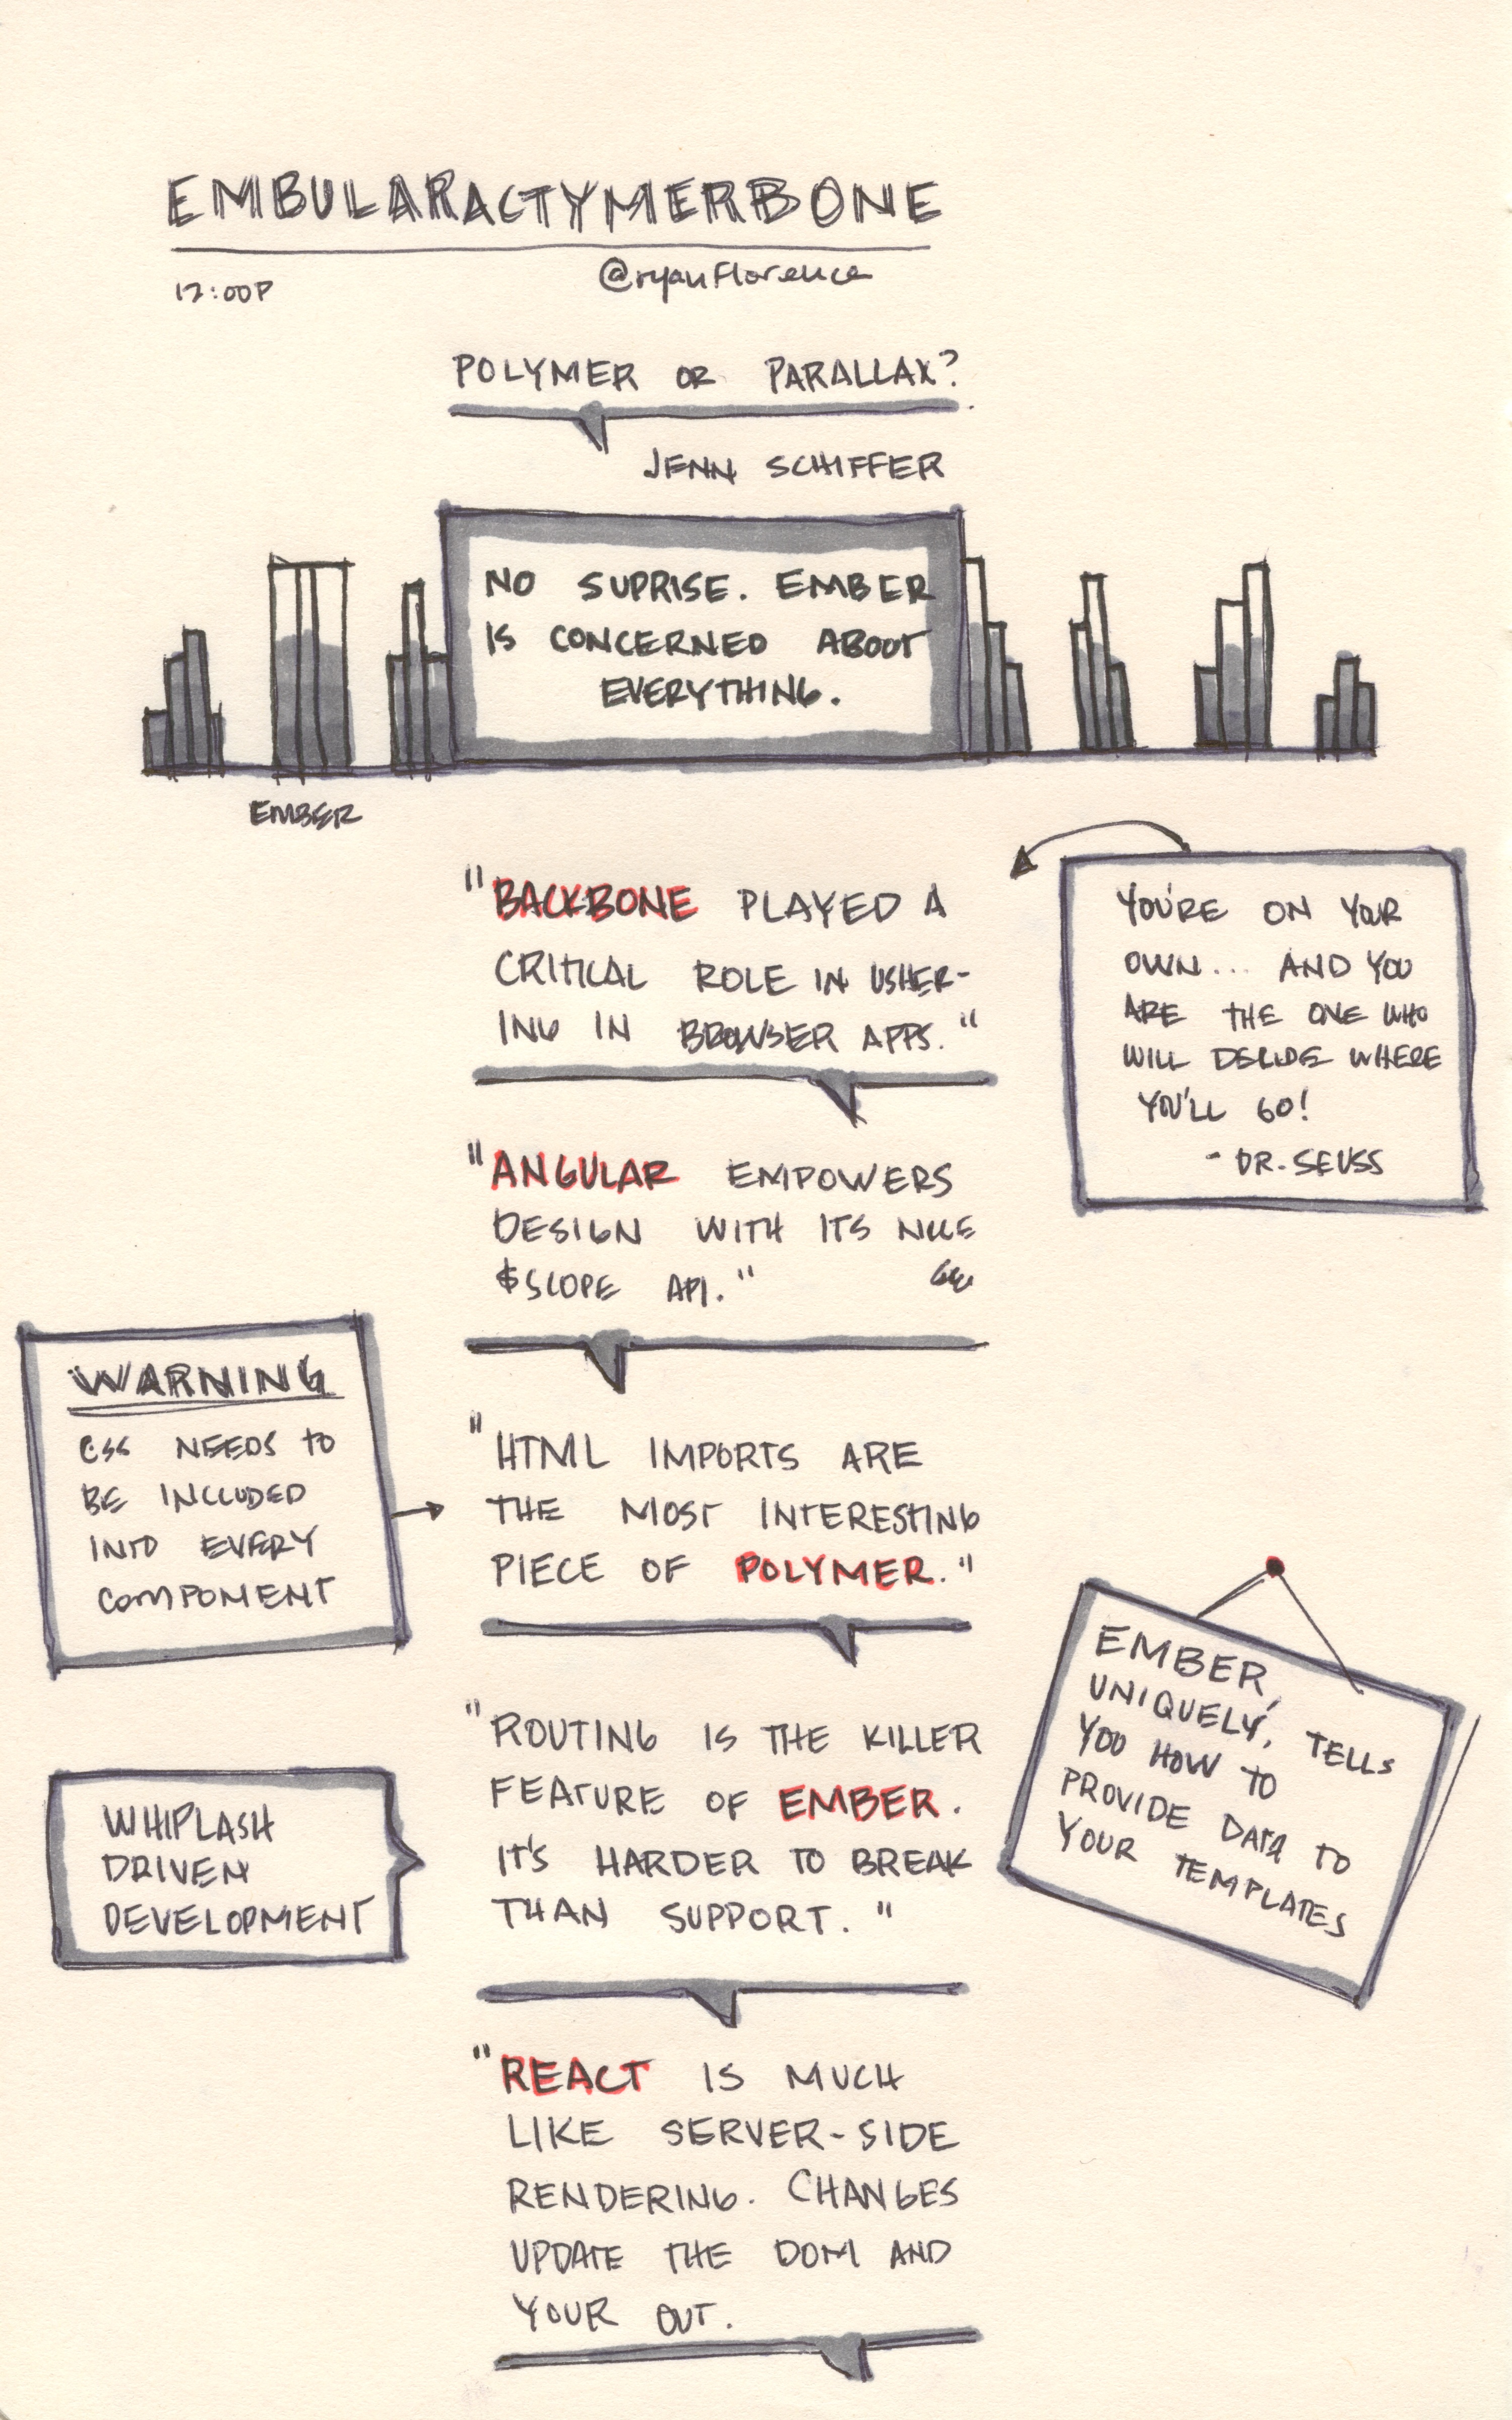 EMBULARACTYMERBONE
12:00P
@ryanflorence
POLYMER OR PARALLAX?
JENN SCHIFFER
NO SUPRISE. EMBER
IS CONCERNED ABOUT
EVERYTHING.
EMBER
"BACKBONE PLAYED A
CRITICAL ROLE IN USHER-
ING IN BROWSER APPS."
YOU'RE ON YOUR
OWN... AND YOU
ARE THE ONE WHO
WILL DECIDE WHERE
YOU'LL GO!
- DR. SEUSS
"ANGULAR EMPOWERS
DESIGN WITH ITS NICE
$SCOPE API."
WARNING
CSS NEEDS TO
BE INCLUDED
INTO EVERY
COMPOMENT
"HTML IMPORTS ARE
THE MOST INTERESTING
PIECE OF POLYMER."
EMBER,
UNIQUELY, TELLS
YOU HOW TO
PROVIDE DATA TO
YOUR TEMPLATES
"ROUTING IS THE KILLER
FEATURE OF EMBER.
IT'S HARDER TO BREAK
THAN SUPPORT."
WHIPLASH
DRIVEN
DEVELOPMENT
"REACT IS MUCH
LIKE SERVER-SIDE
RENDERING. CHANGES
UPDATE THE DOM AND
YOUR OUT.